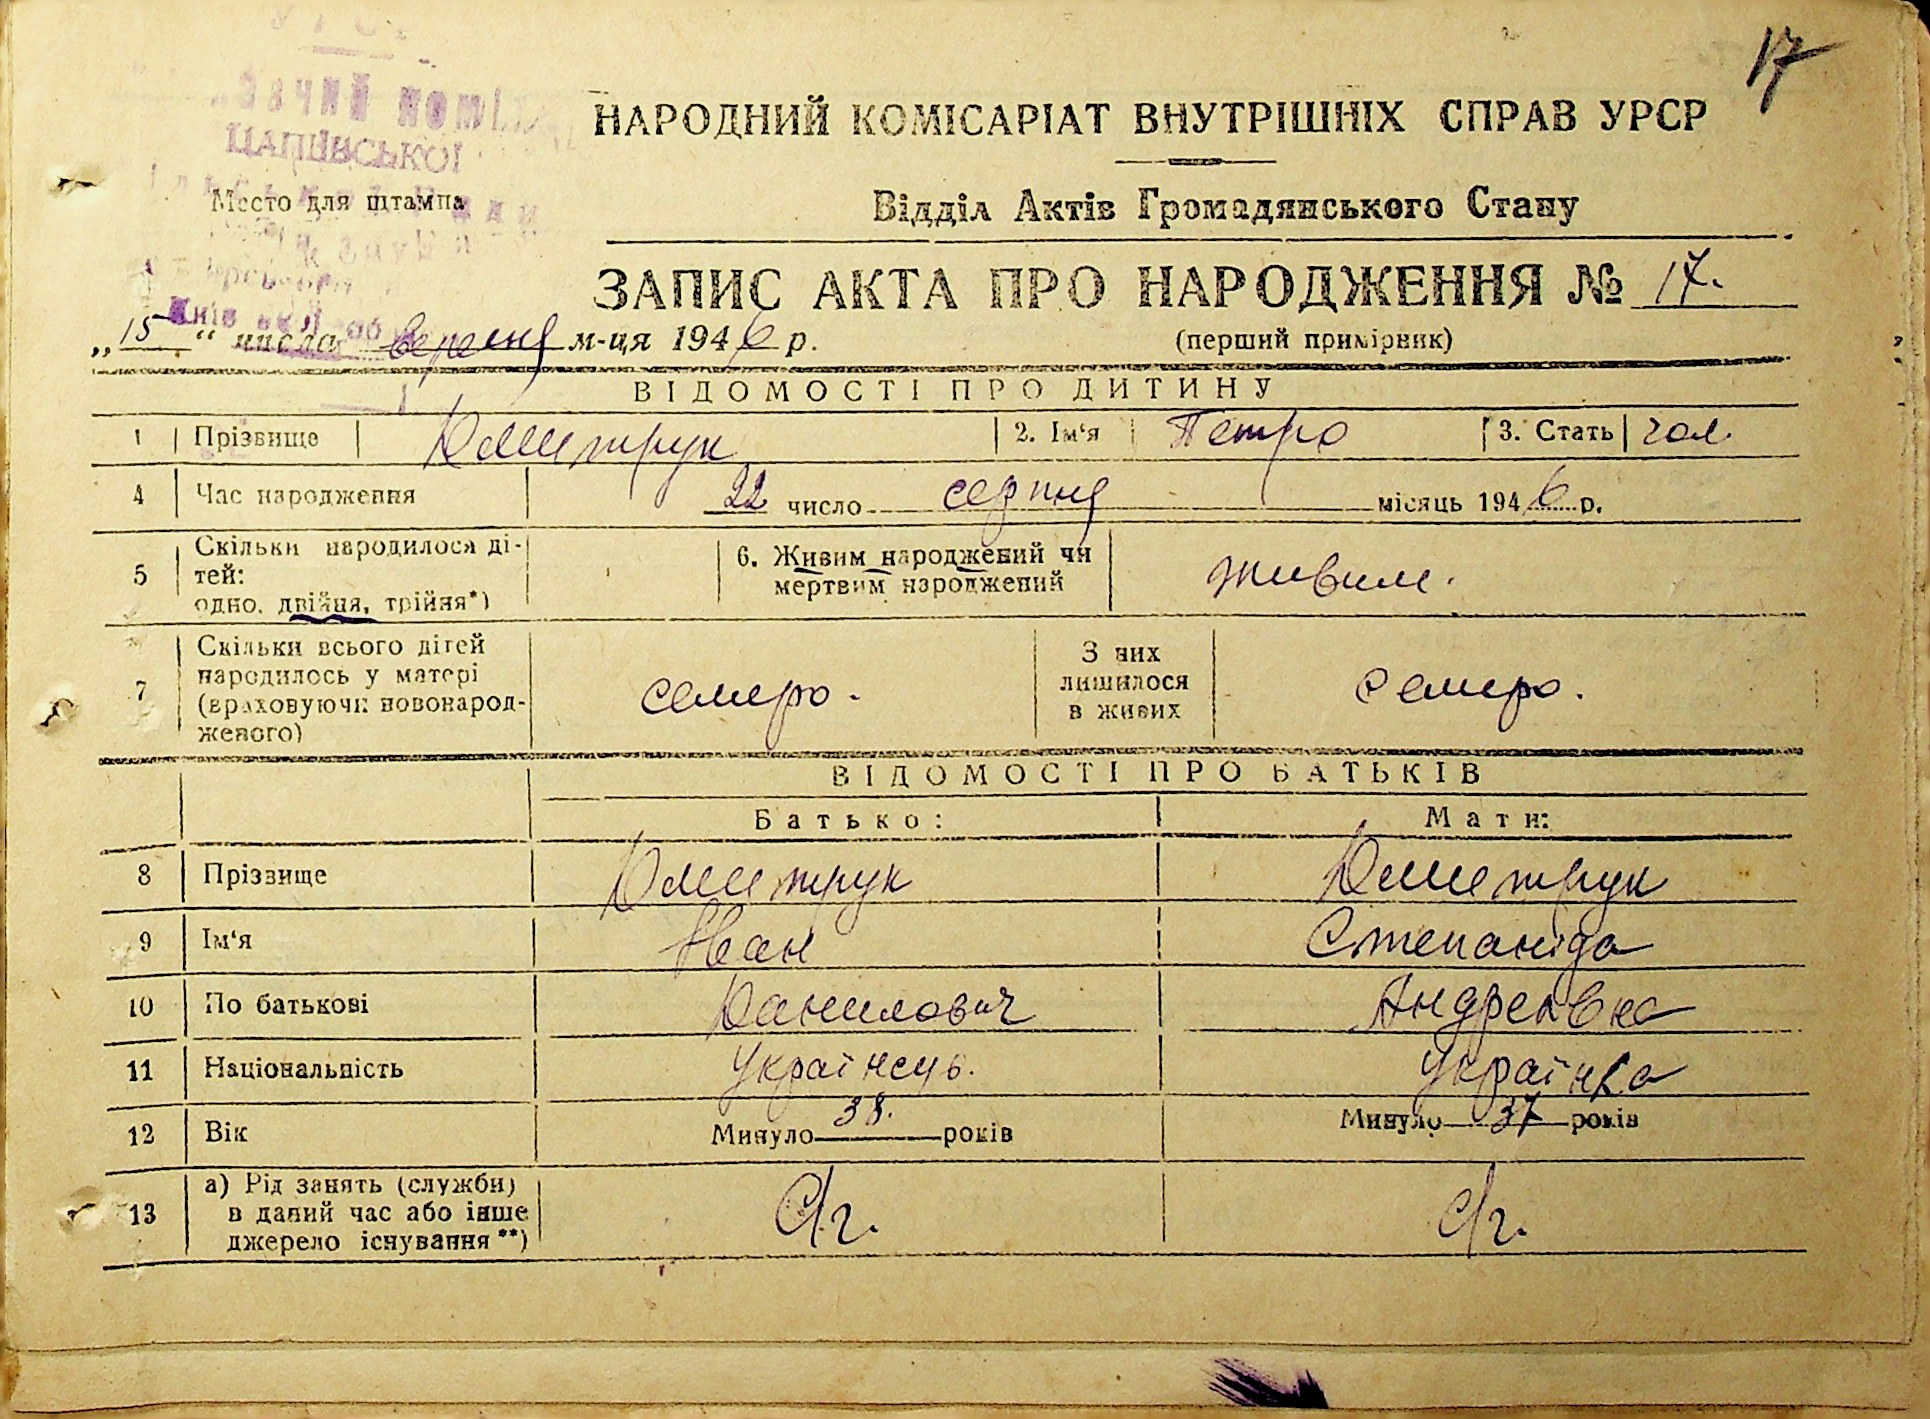 17
НАРОДНИЙ КОМІСАРІАТ ВНУТРІШНІХ СПРАВ УРСР
ЦАПІВСЬКОЇ
Место для штампа
Відділ Актів Громадянського Стану
ЗАПИС АКТА ПРО НАРОДЖЕННЯ № 17.
„15“ числа вересня м-ця 1946 р.
(перший примірник)
ВІДОМОСТІ ПРО ДИТИНУ
1 Прізвище Дмитрук 2. Ім‘я Петро 3. Стать чол.
4 Час народження 22 число серпня місяць 1946 р.
5 Скільки народилося ді-
тей:
одно, двійня, трійня*)
6. Живим народжений чи
мертвим народжений
живим.
7 Скільки всього дітей
народилось у матері
(враховуючи новонарод-
женого)
семеро.
З них
лишилося
в живих
семеро.
ВІДОМОСТІ ПРО БАТЬКІВ
Батько: Мати:
8 Прізвище Дмитрук Дмитрук
9 Ім‘я Іван Степаніда
10 По батькові Данилович Андреівна
11 Національність Українець. Українка
12 Вік Минуло 38. років Минуло 37 років
13 а) Рід занять (служби)
в даний час або інше
джерело існування**)
С/г. С/г.